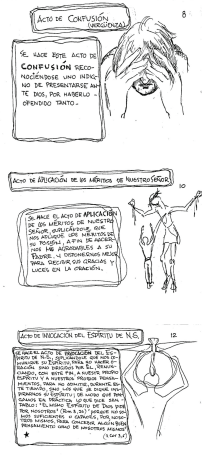 ACTO DE CONFUSIÓN
(VERGÜENZA)
8
SE HACE ESTE ACTO DE
CONFUSIÓN RECO-
NOCIÉNDOSE UNO INDIG-
NO DE PRESENTARSE AN-
TE DIOS, POR HABERLO
OFENDIDO TANTO.
ACTO DE APLICACIÓN DE LOS MÉRITOS DE NUESTRO SEÑOR
10
SE HACE EL ACTO DE APLICACIÓN
DE LOS MÉRITOS DE NUESTRO
SEÑOR, SUPLICÁNDOLE, QUE
NOS APLIQUE LOS MÉRITOS DE
SU PASIÓN, A FIN DE HACER-
NOS MÁS AGRADABLES A SU
PADRE, Y DISPONERNOS MEJOR
PARA RECIBIR SUS GRACIAS Y
LUCES EN LA ORACIÓN.
ACTO DE INVOCACIÓN DEL ESPÍRITU DE N.S.
12
SE HACE EL ACTO DE INVOCACIÓN DEL ES-
PÍRITU DE N.S., SUPLICÁNDOLE QUE NOS CO-
MUNIQUE SU ESPÍRITU, PARA NO HACER O-
RACIÓN SINO DIRIGIDOS POR ÉL, RENUN-
CIANDO, CON ESTE FIN, A NUESTRO PROPIO
ESPÍRITU Y A NUESTROS PROPIOS PENSA-
MIENTOS, PARA NO ADMITIR, DURANTE ES-
TE TIEMPO, SINO LOS QUE SE DIGNE INS-
PIRARNOS SU ESPÍRITU; DE MODO QUE PON-
GAMOS EN PRÁCTICA LO QUE DICE SAN
PABLO: "EL MISMO ESPÍRITU DE DIOS PIDE
POR NOSOTROS" (ROM. 8, 26) "PORQUE NO SO-
MOS SUFICIENTES O CAPACES, POR NOSO-
TROS MISMOS, PARA CONCEBIR ALGÚN BUEN
PENSAMIENTO COMO DE NOSOTROS MISMOS"
(2 COR 3, 5)